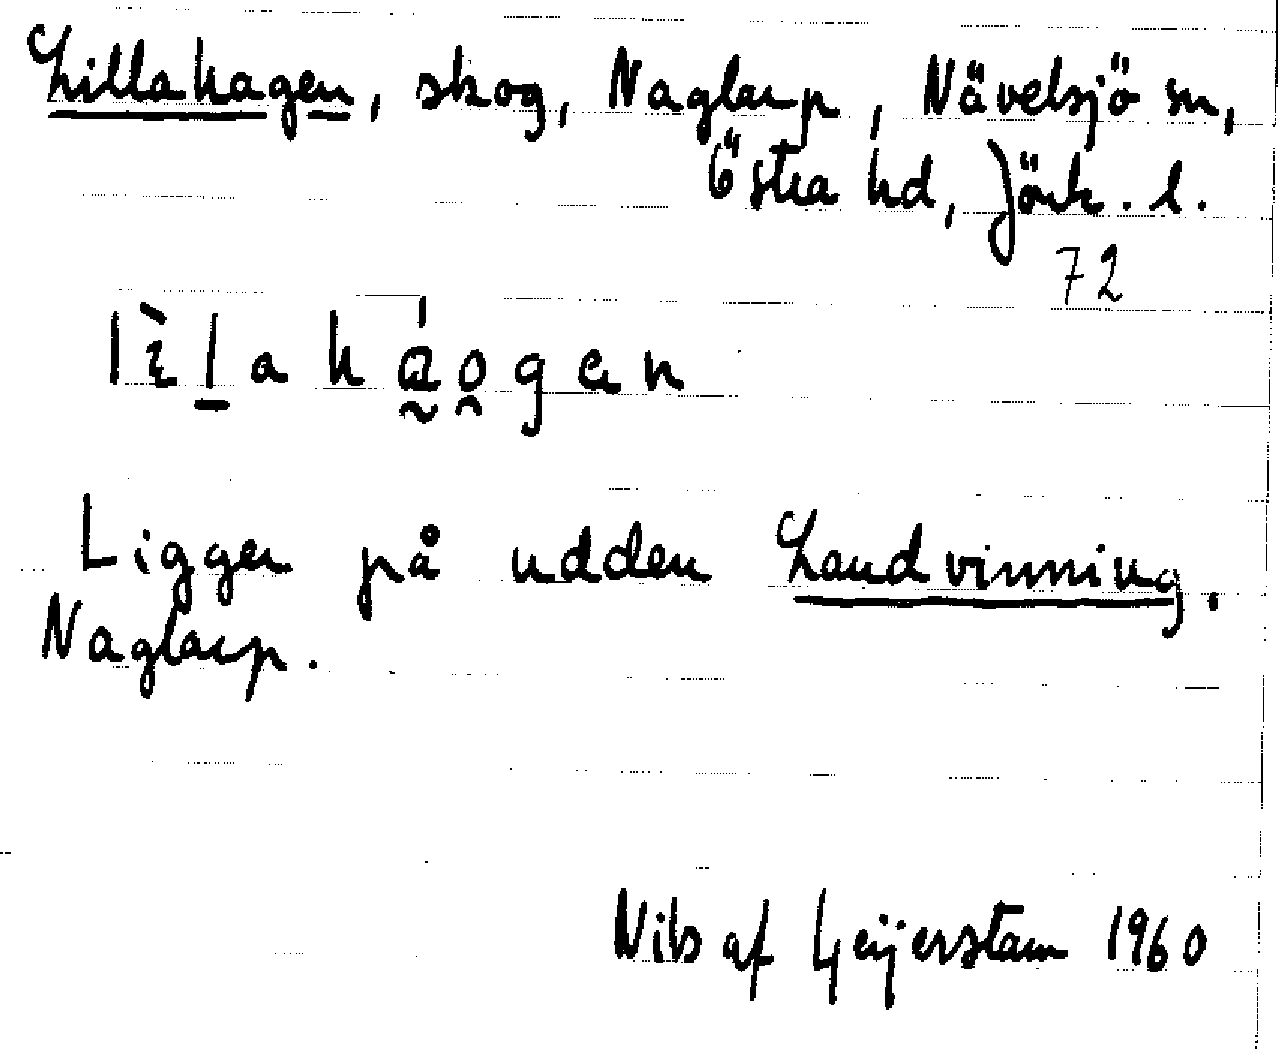 Lillahagen, skog, Naglarp, Nävelsjö sn,
Östra hd, Jönk. l.
72
lìlaháogen
Ligger på udden Landvinning.
Naglarp.
Nils af Geijerstam 1960